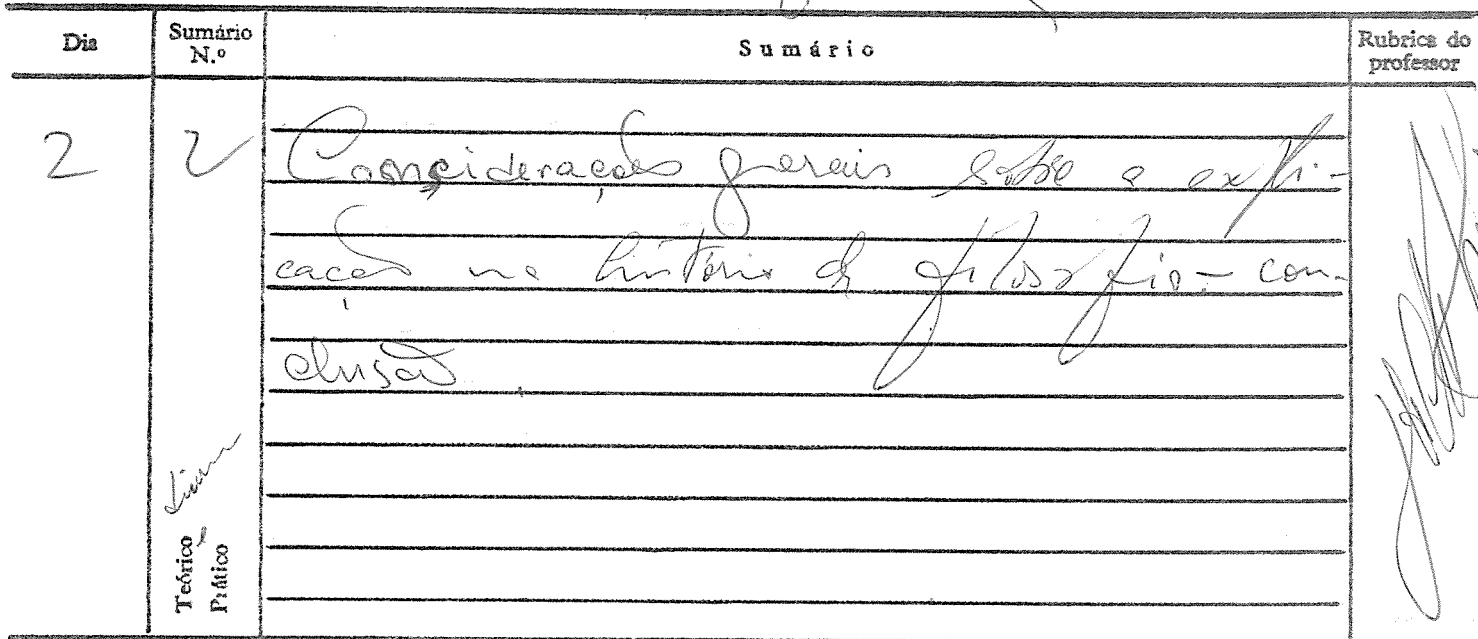 Dia
Sumário N.º
Sumário
Rubrica do professor
2
2
Considerações gerais sobre a expli-
cação na história da filosofia - con-
clusão.
Teórico
Prático